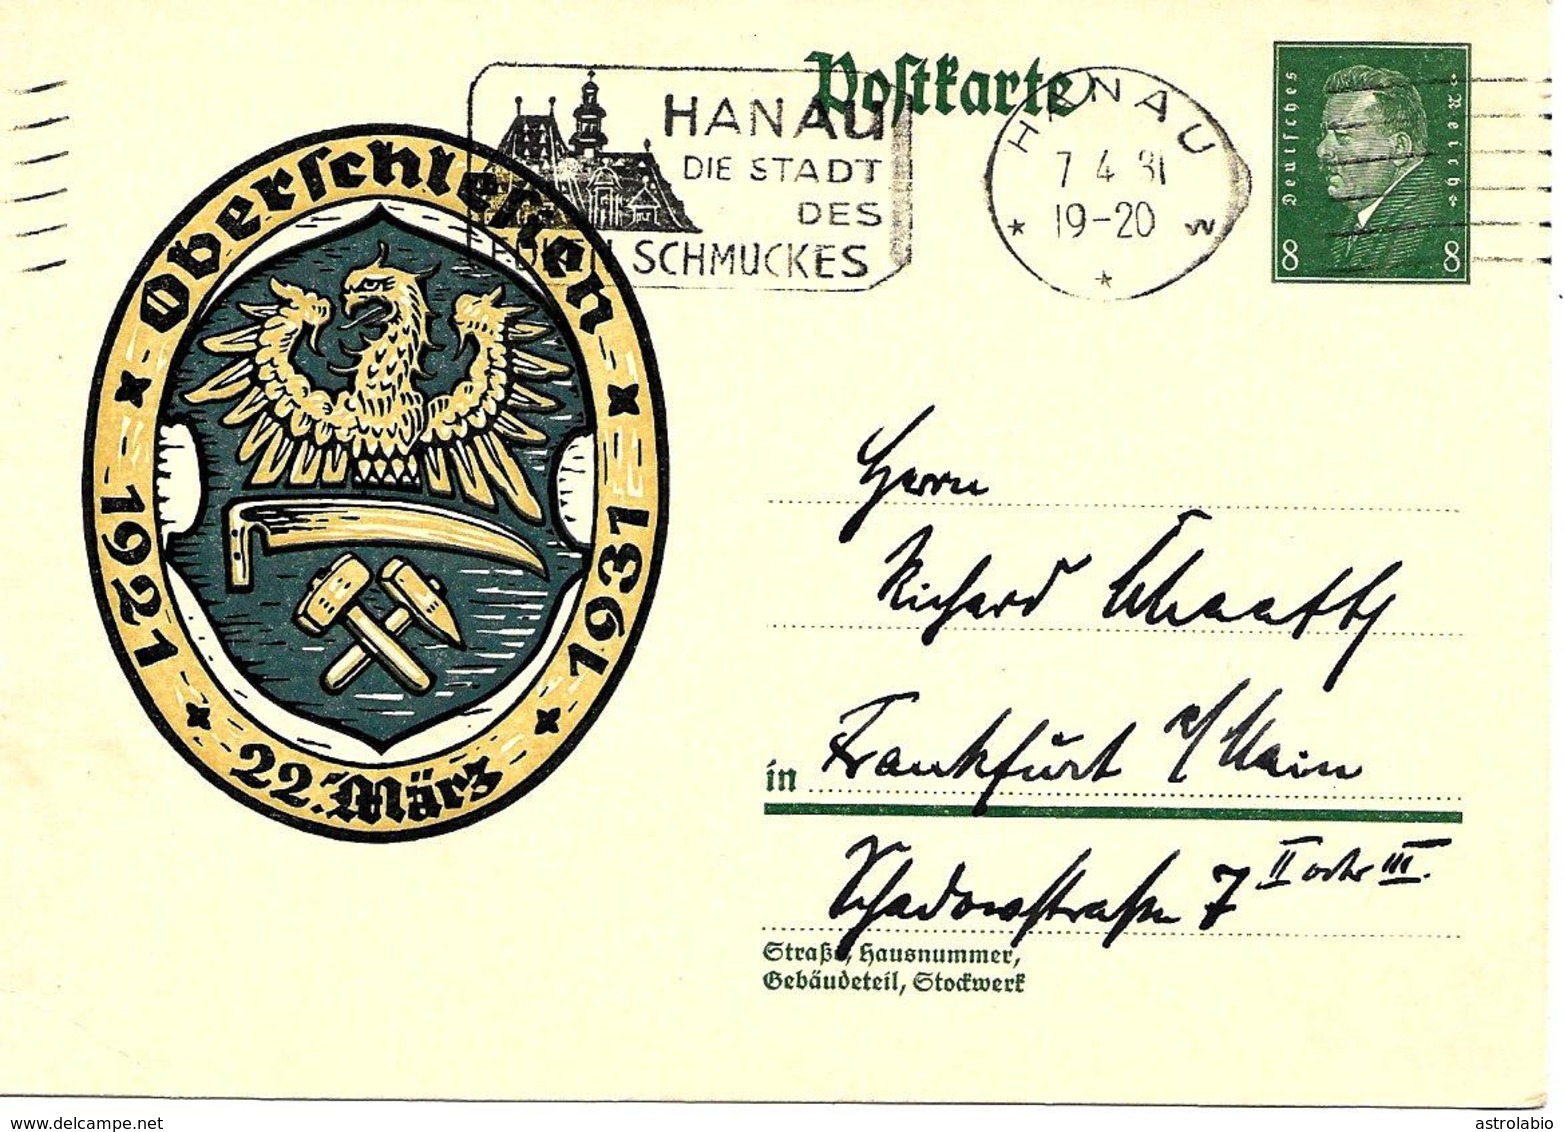 Postkarte
HANAU
DIE STADT
DES
EDLEN SCHMUCKES
HANAU
7 4 31
19-20
Deutsches Reich
8 8
Oberschlesien
1921 1931
22. März
Herrn
Richard
in Frankfurt a/Main
Schadowstraße 7 II oder III.
Straße, Hausnummer,
Gebäudeteil, Stockwerk
delcampe.net
astrolabio